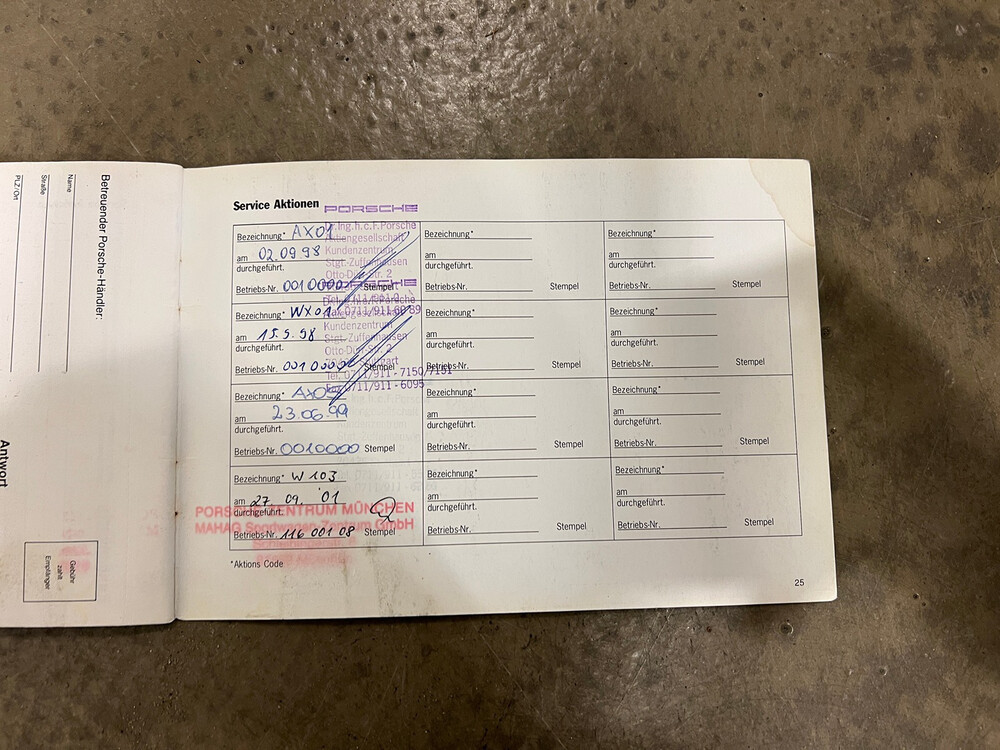 Betreuender Porsche-Händler:
Name
Straße
PLZ/Ort
Antwort
Gebühr
zahlt
Empfänger
Service Aktionen
PORSCHE
Bezeichnung* AX01
am 02.09.98
durchgeführt.
Betriebs-Nr. Stempel
Ing.h.c.F.Porsche
Aktiengesellschaft
Kundenzentrum
Stgt.-Zuffenhausen
Otto-Dürr-Str. 2
Bezeichnung* WX01
am 15.9.98
durchgeführt.
Betriebs-Nr. Stempel
Kundenzentrum
Stgt.-Zuffenhausen
Otto-Dürr-Str. 2
Tel. 0711/911 - 7150/7151
Fax 0711/911 - 6095
Bezeichnung*
am 23.06.99
durchgeführt.
Betriebs-Nr. 0010000 Stempel
Bezeichnung* W 103
am 27. 09. '01
durchgeführt.
Betriebs-Nr. 116 001 08 Stempel
PORSCHE ZENTRUM MÜNCHEN
MAHAG Sportwagen-Zentrum GmbH
Bezeichnung*
am
durchgeführt.
Betriebs-Nr. Stempel
Bezeichnung*
am
durchgeführt.
Betriebs-Nr. Stempel
Bezeichnung*
am
durchgeführt.
Betriebs-Nr. Stempel
Bezeichnung*
am
durchgeführt.
Betriebs-Nr. Stempel
Bezeichnung*
am
durchgeführt.
Betriebs-Nr. Stempel
Bezeichnung*
am
durchgeführt.
Betriebs-Nr. Stempel
Bezeichnung*
am
durchgeführt.
Betriebs-Nr. Stempel
Bezeichnung*
am
durchgeführt.
Betriebs-Nr. Stempel
*Aktions Code
25